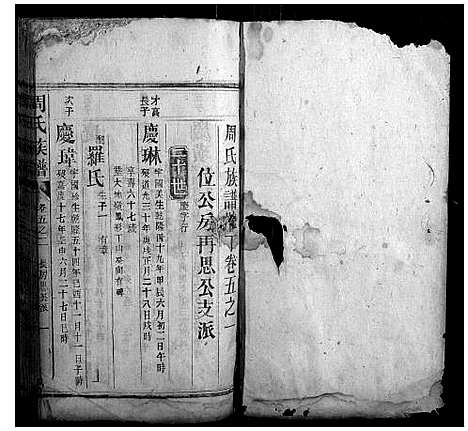 周氏族譜卷五之一
位公房再思公支派
三十世 慶字行
才高長子
慶琳 字國美生乾隆四十九年甲辰六月初二日午時
歿道光三十年庚戌正月二十八日戌時
享壽六十七歲
葬大地嶺鳳形丁山癸向有碑
配羅氏 生子一 有章
次子
慶瑋 字國珍生乾隆五十四年己酉十二月十一日子時
歿嘉慶十七年壬申六月二十七日巳時
周氏族譜 卷五之一